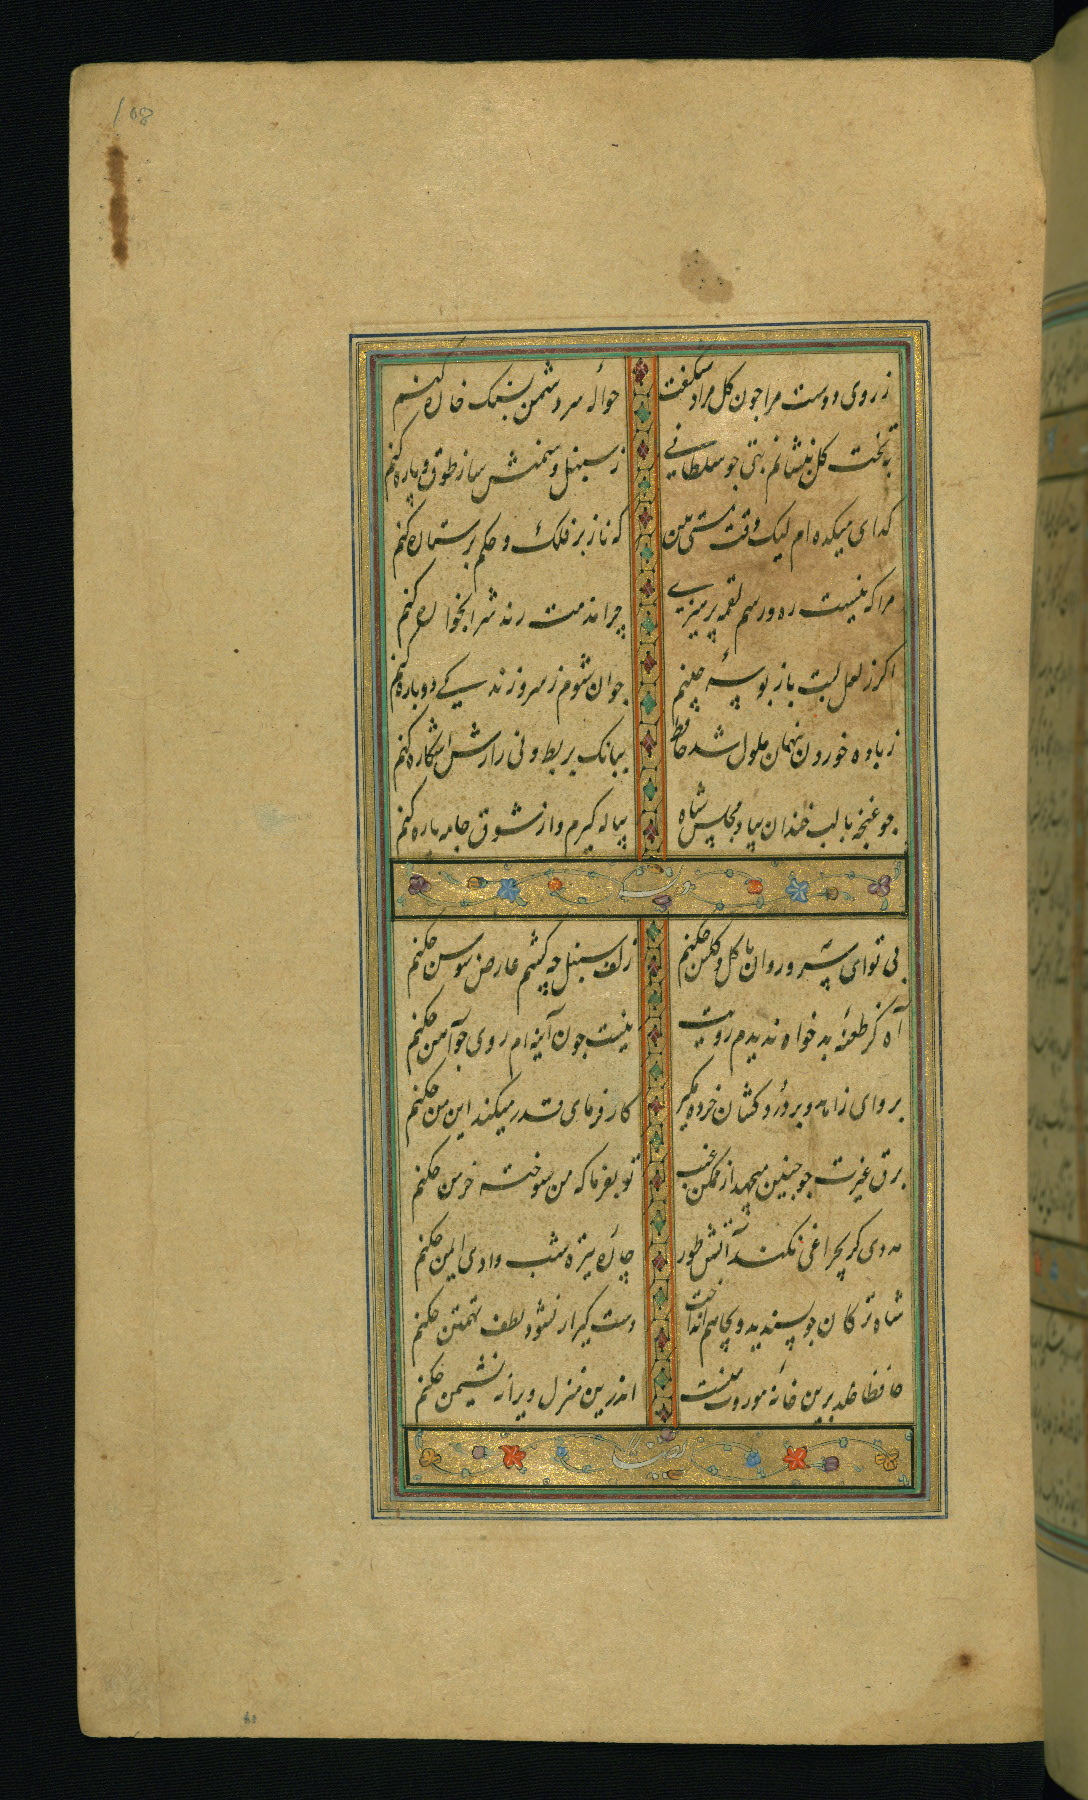 108
ز روی دوست مرا چون کل مراد شکفت حواله سر دشمن بسنک خاره کنم
به تخت کل بنشانم بتی جو سلطانی ز سنبل و سمنش ساز طوق و یاره کنم
کدای میکده ام لیک وقت مستی بین که ناز بر فلک و حکم بر ستاره کنم
مرا که نیست ره و رسم لقمه پرهیزی چرا مذمت رند شرابخواره کنم
اکر ز لعل لبت باز بوسهٔ چینم جوان شوم ز سر و زندکی دوباره کنم
ز باده خوردن پنهان ملول شد حافظ ببانک بربط و نی رازش اشکاره کنم
جو غنچه با لب خندان بیاد مجلس شاه پیاله کیرم و از شوق جامه پاره کنم
بی تو ای سرو روان با کل و کلشن چکنم زلف سنبل چه کشم عارض سوسن چکنم
آه کز طعنهٔ بدخواه ندیدم رویت نیست جون آینه ام روی ز آهن چکنم
برو ای زاهد و بر دردکشان خرده مکیر کارفرمای قدر میکند این من چکنم
برق غیرت جو جنین میجهد از مکمن غیب تو بفرما که من سوخته خرمن چکنم
مددی کر بچراغی نکند آتش طور چارهٔ تیره شب وادی ایمن چکنم
شاه ترکان جو پسندید و بچاهم انداخت دست کیر ار نشود لطف تهمتن چکنم
حافظا خلد برین خانهٔ موروث منست اندرین منزل ویرانه نشیمن چکنم